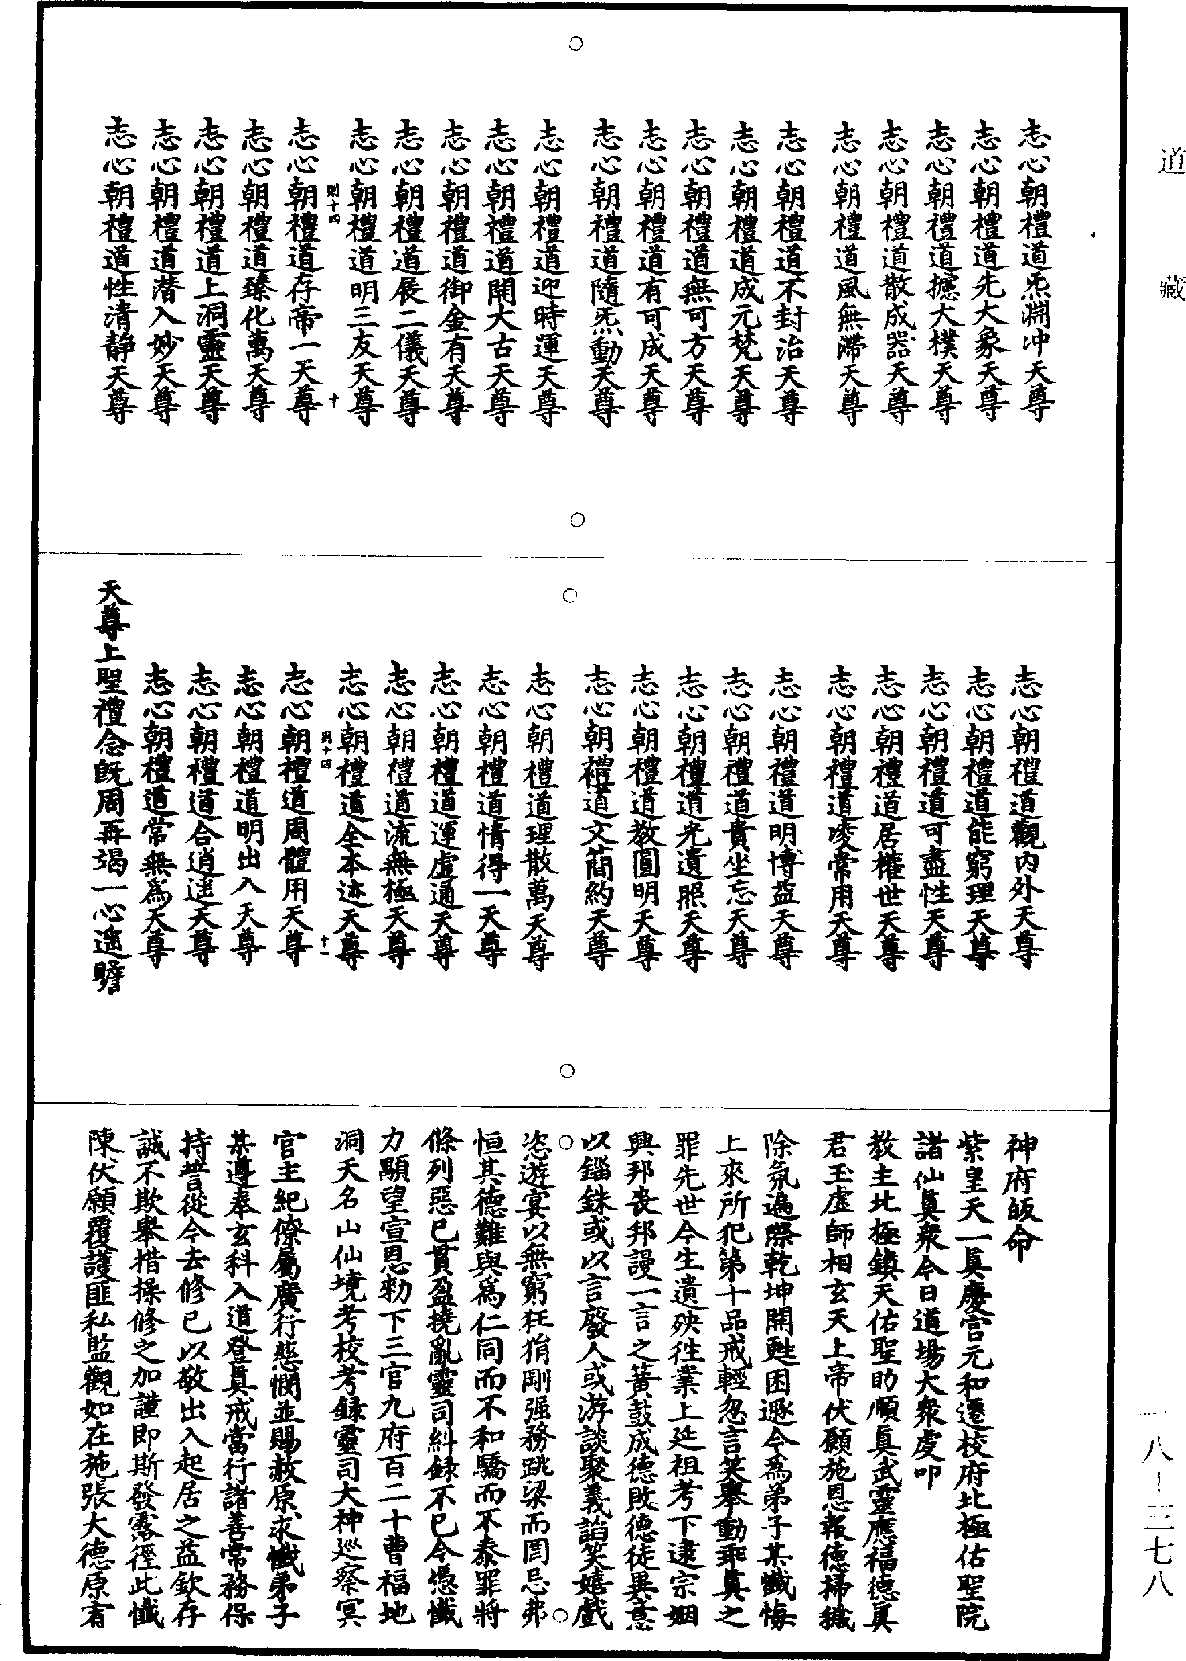 道藏
志心朝禮道炁淵沖天尊
志心朝禮道先大象天尊
志心朝禮道摅大樸天尊
志心朝禮道散成器天尊
志心朝禮道風無滯天尊
志心朝禮道不封治天尊
志心朝禮道成元梵天尊
志心朝禮道無可方天尊
志心朝禮道有可成天尊
志心朝禮道隨炁動天尊
志心朝禮道迎時運天尊
志心朝禮道開大古天尊
志心朝禮道御金有天尊
志心朝禮道展二儀天尊
志心朝禮道明三友天尊
則十四 十
志心朝禮道存帝一天尊
志心朝禮道臻化萬天尊
志心朝禮道上洞靈天尊
志心朝禮道潛入妙天尊
志心朝禮道性清静天尊
志心朝禮道觀内外天尊
志心朝禮道能窮理天尊
志心朝禮道可盡性天尊
志心朝禮道居權世天尊
志心朝禮道崚常用天尊
志心朝禮道明博益天尊
志心朝禮道貴坐忘天尊
志心朝禮道光遺照天尊
志心朝禮道教圓明天尊
志心朝禮道文簡約天尊
志心朝禮道理散萬天尊
志心朝禮道情得一天尊
志心朝禮道運虛通天尊
志心朝禮道流無極天尊
志心朝禮道全本迹天尊
則十四 十一
志心朝禮道周體用天尊
志心朝禮道明出入天尊
志心朝禮道合逍遥天尊
志心朝禮道常無爲天尊
天尊上聖禮念既周再竭一心遥瞻
神府皈命
紫皇天一真慶宫元和遷校府北極佑聖院
諸仙真衆今日道場大衆虔叩
教主北極鎮天佑聖助順真武靈應福德真
君玉虛師相玄天上帝伏願施恩報德掃穢
除氛遍際乾坤開甦困趣今爲弟子某懺悔
上來所犯第十品戒輕忽言笑舉動乖真之
罪先世今生遺殃往業上延祖考下逮宗姻
興邦喪邦謾一言之簧鼓成德敗德徒異意
以錙銖或以言廢人或游談聚義諂笑嬉戲
恣遊宴以無窮狂狷剛强務跳梁而罔忌弗
恒其德難與爲仁同而不和驕而不泰罪將
條列惡已貫盈撓亂靈司糾録不已今憑懺
力顯望宣恩勑下三官九府百二十曹福地
洞天名山仙境考校考録靈司大神巡察冥
官主紀僚屬廣行悲憫並賜赦原求懺弟子
某遵奉玄科入道登真戒當行諸善常務保
持誓從今去修已以敬出入起居之益欽存
誠不欺舉措操修之加謹即斯發露徑此懺
陳伏願覆護匪私監觀如在施張大德原宥
一八-三七八